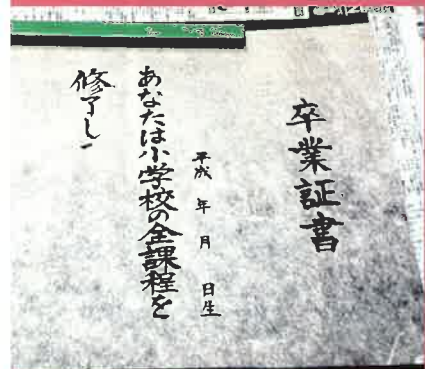 卒業証書
平成 年 月 日生
あなたは小学校の全課程を
修了し